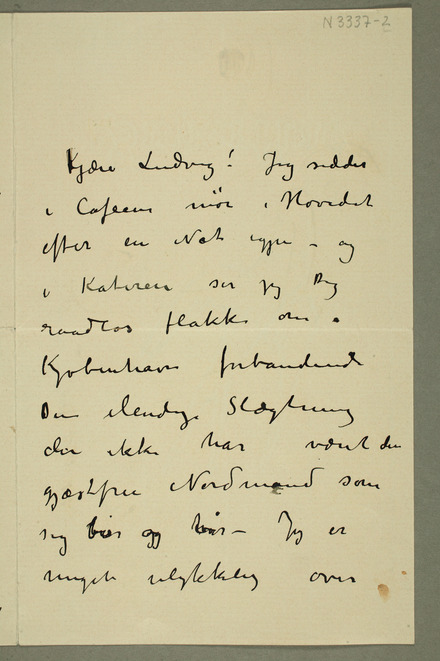 N 3337-2
Kjære Ludvig! Jeg sidder
i Cafeen mör i Hovedet
efter en Nat igjen – og
i Kateren ser jeg Dig
raadlös flakke om i
Kjøbenhavn forbandende
Din elendige Slægtning
der ikke har været den
gjæstfrie Nordmand som
sig bör og hör – Jeg er
meget ulykkelig over